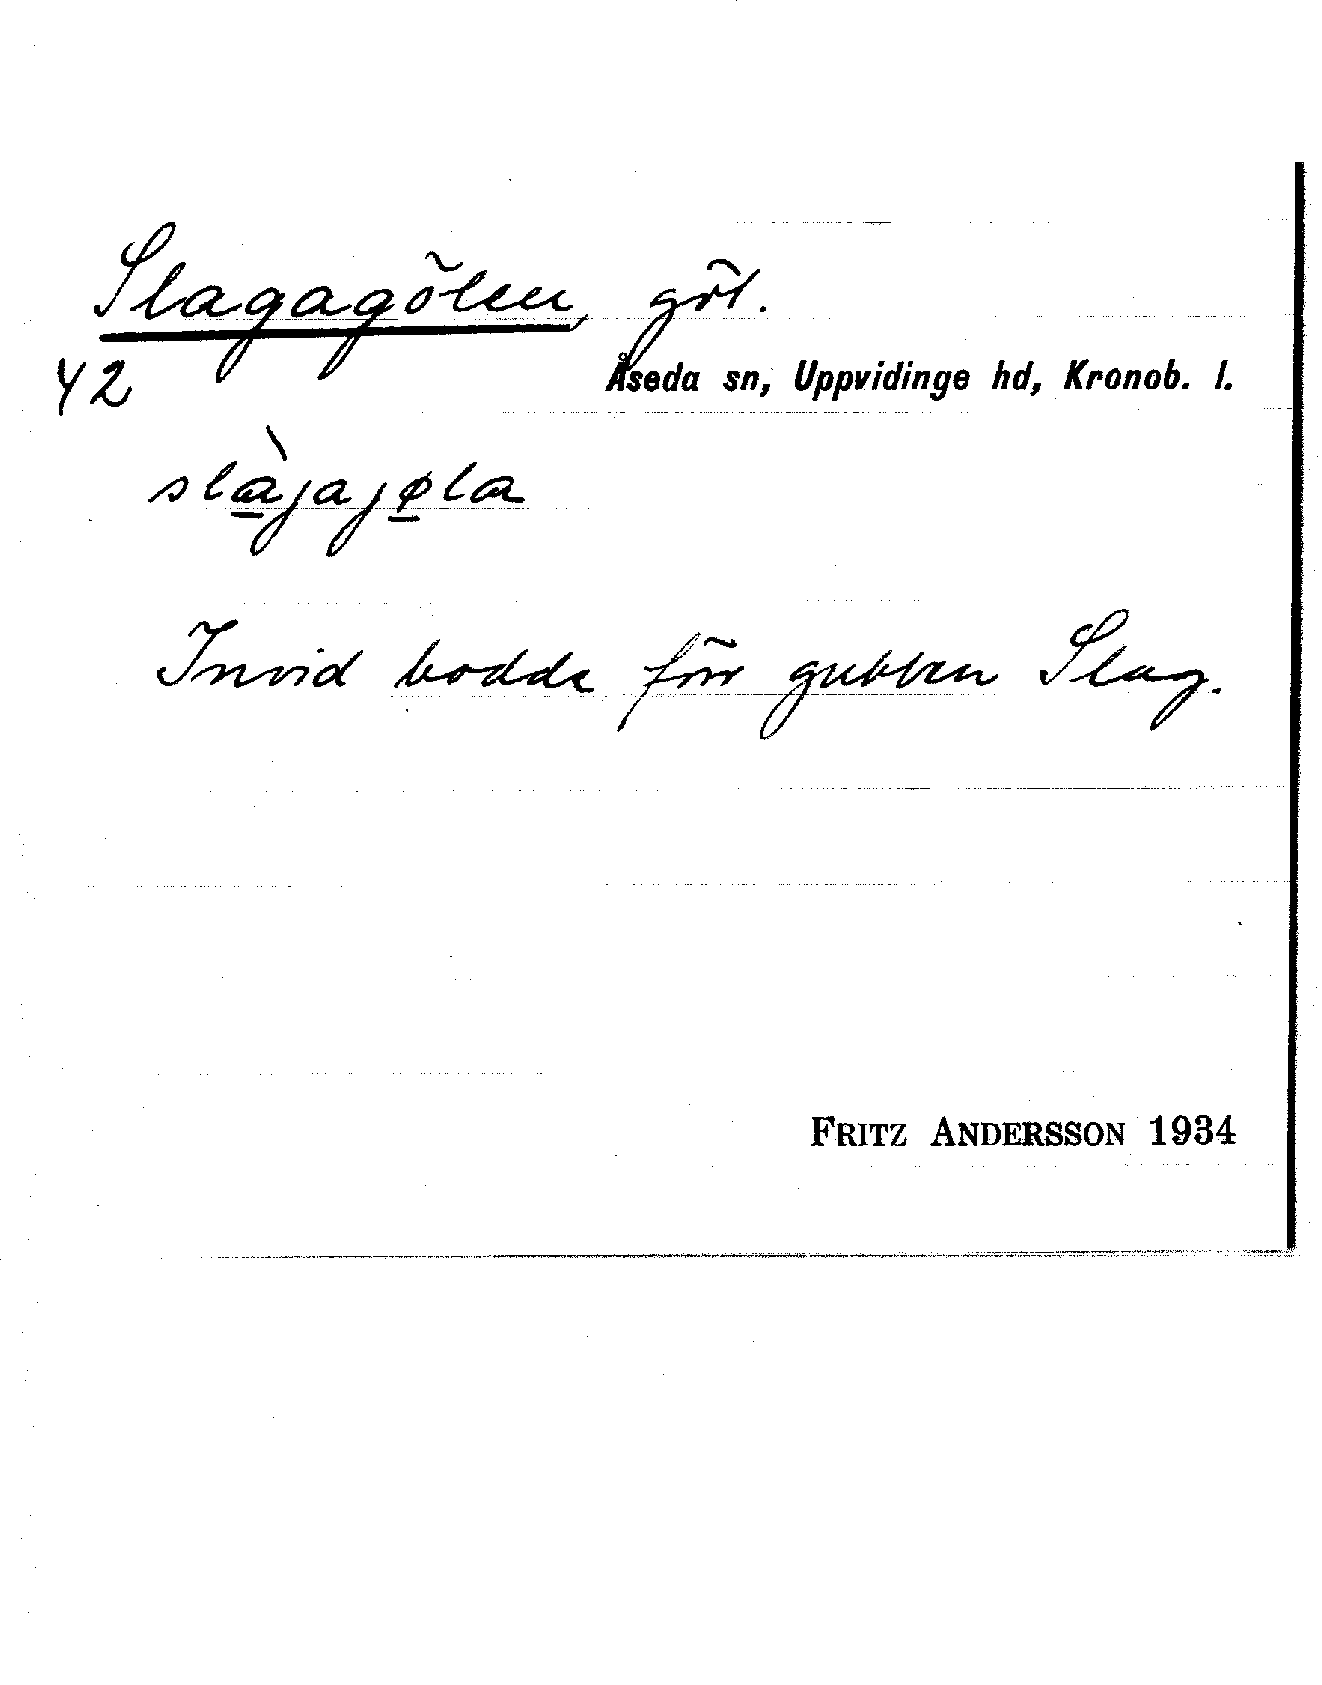 Slagagölen, göl.
42
Åseda sn, Uppvidinge hd, Kronob. l.
slàjajøla
Invid bodde förr gubben Slag.
FRITZ ANDERSSON 1934